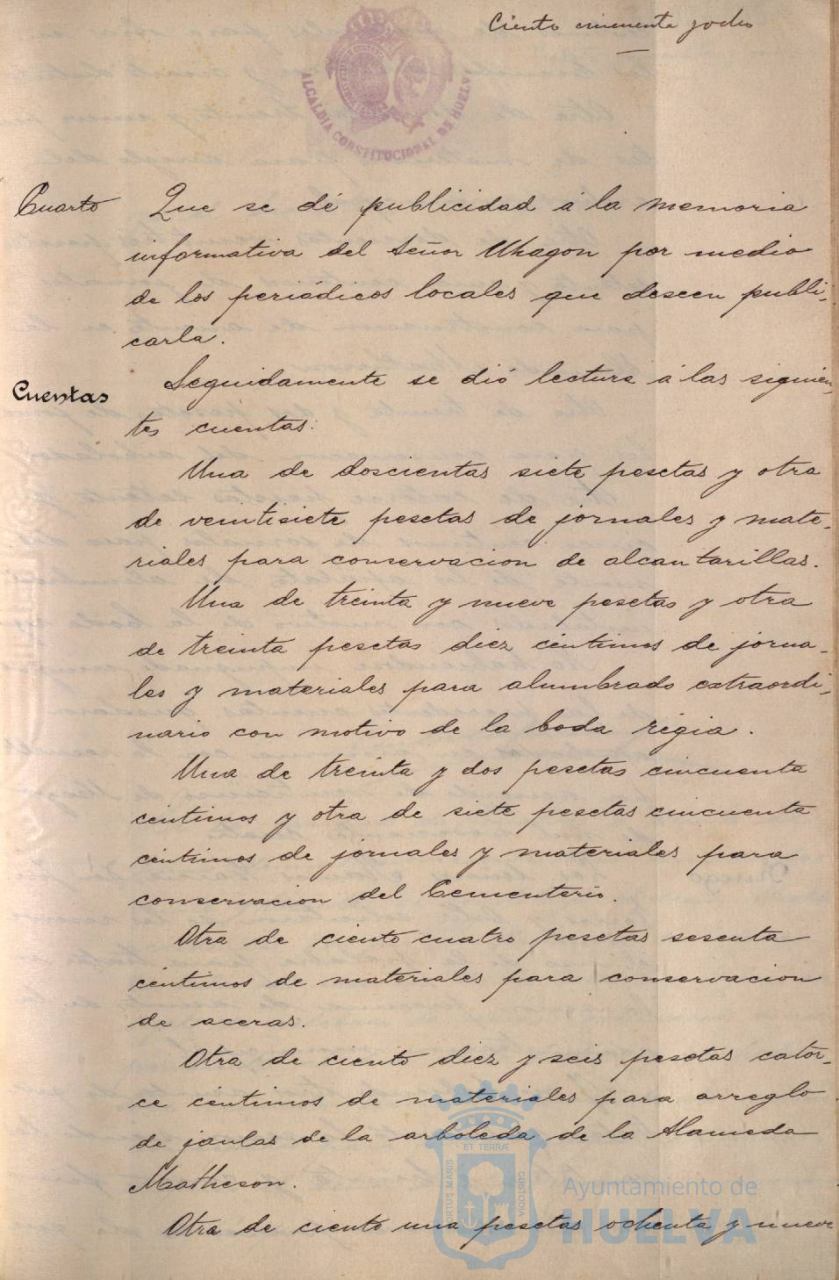 Ciento cincuenta y ocho
ALCALDIA CONSTITUCIONAL DE HUELVA
Cuarto Que se dé publicidad á la memoria
informativa del Señor Uhagon por medio
de los periódicos locales que deseen publi-
carla.
Cuentas Seguidamente se dió lectura á las siguien-
tes cuentas:
Una de doscientas siete pesetas y otra
de veintisiete pesetas de jornales y mate-
riales para conservacion de alcantarillas.
Una de treinta y nueve pesetas y otra
de treinta pesetas diez céntimos de jorna-
les y materiales para alumbrado extraordi-
nario con motivo de la boda régia.
Una de treinta y dos pesetas cincuenta
céntimos y otra de siete pesetas cincuenta
céntimos de jornales y materiales para
conservacion del Cementerio.
Otra de ciento cuatro pesetas sesenta
céntimos de materiales para conservacion
de aceras.
Otra de ciento diez y seis pesetas cator-
ce céntimos de materiales para arreglo
de jaulas de la arboleda de la Alameda
Matheson.
Otra de ciento una pesetas ochenta y nueve
PORTUS MARIS ET TERRÆ CUSTODIA
Ayuntamiento de
HUELVA